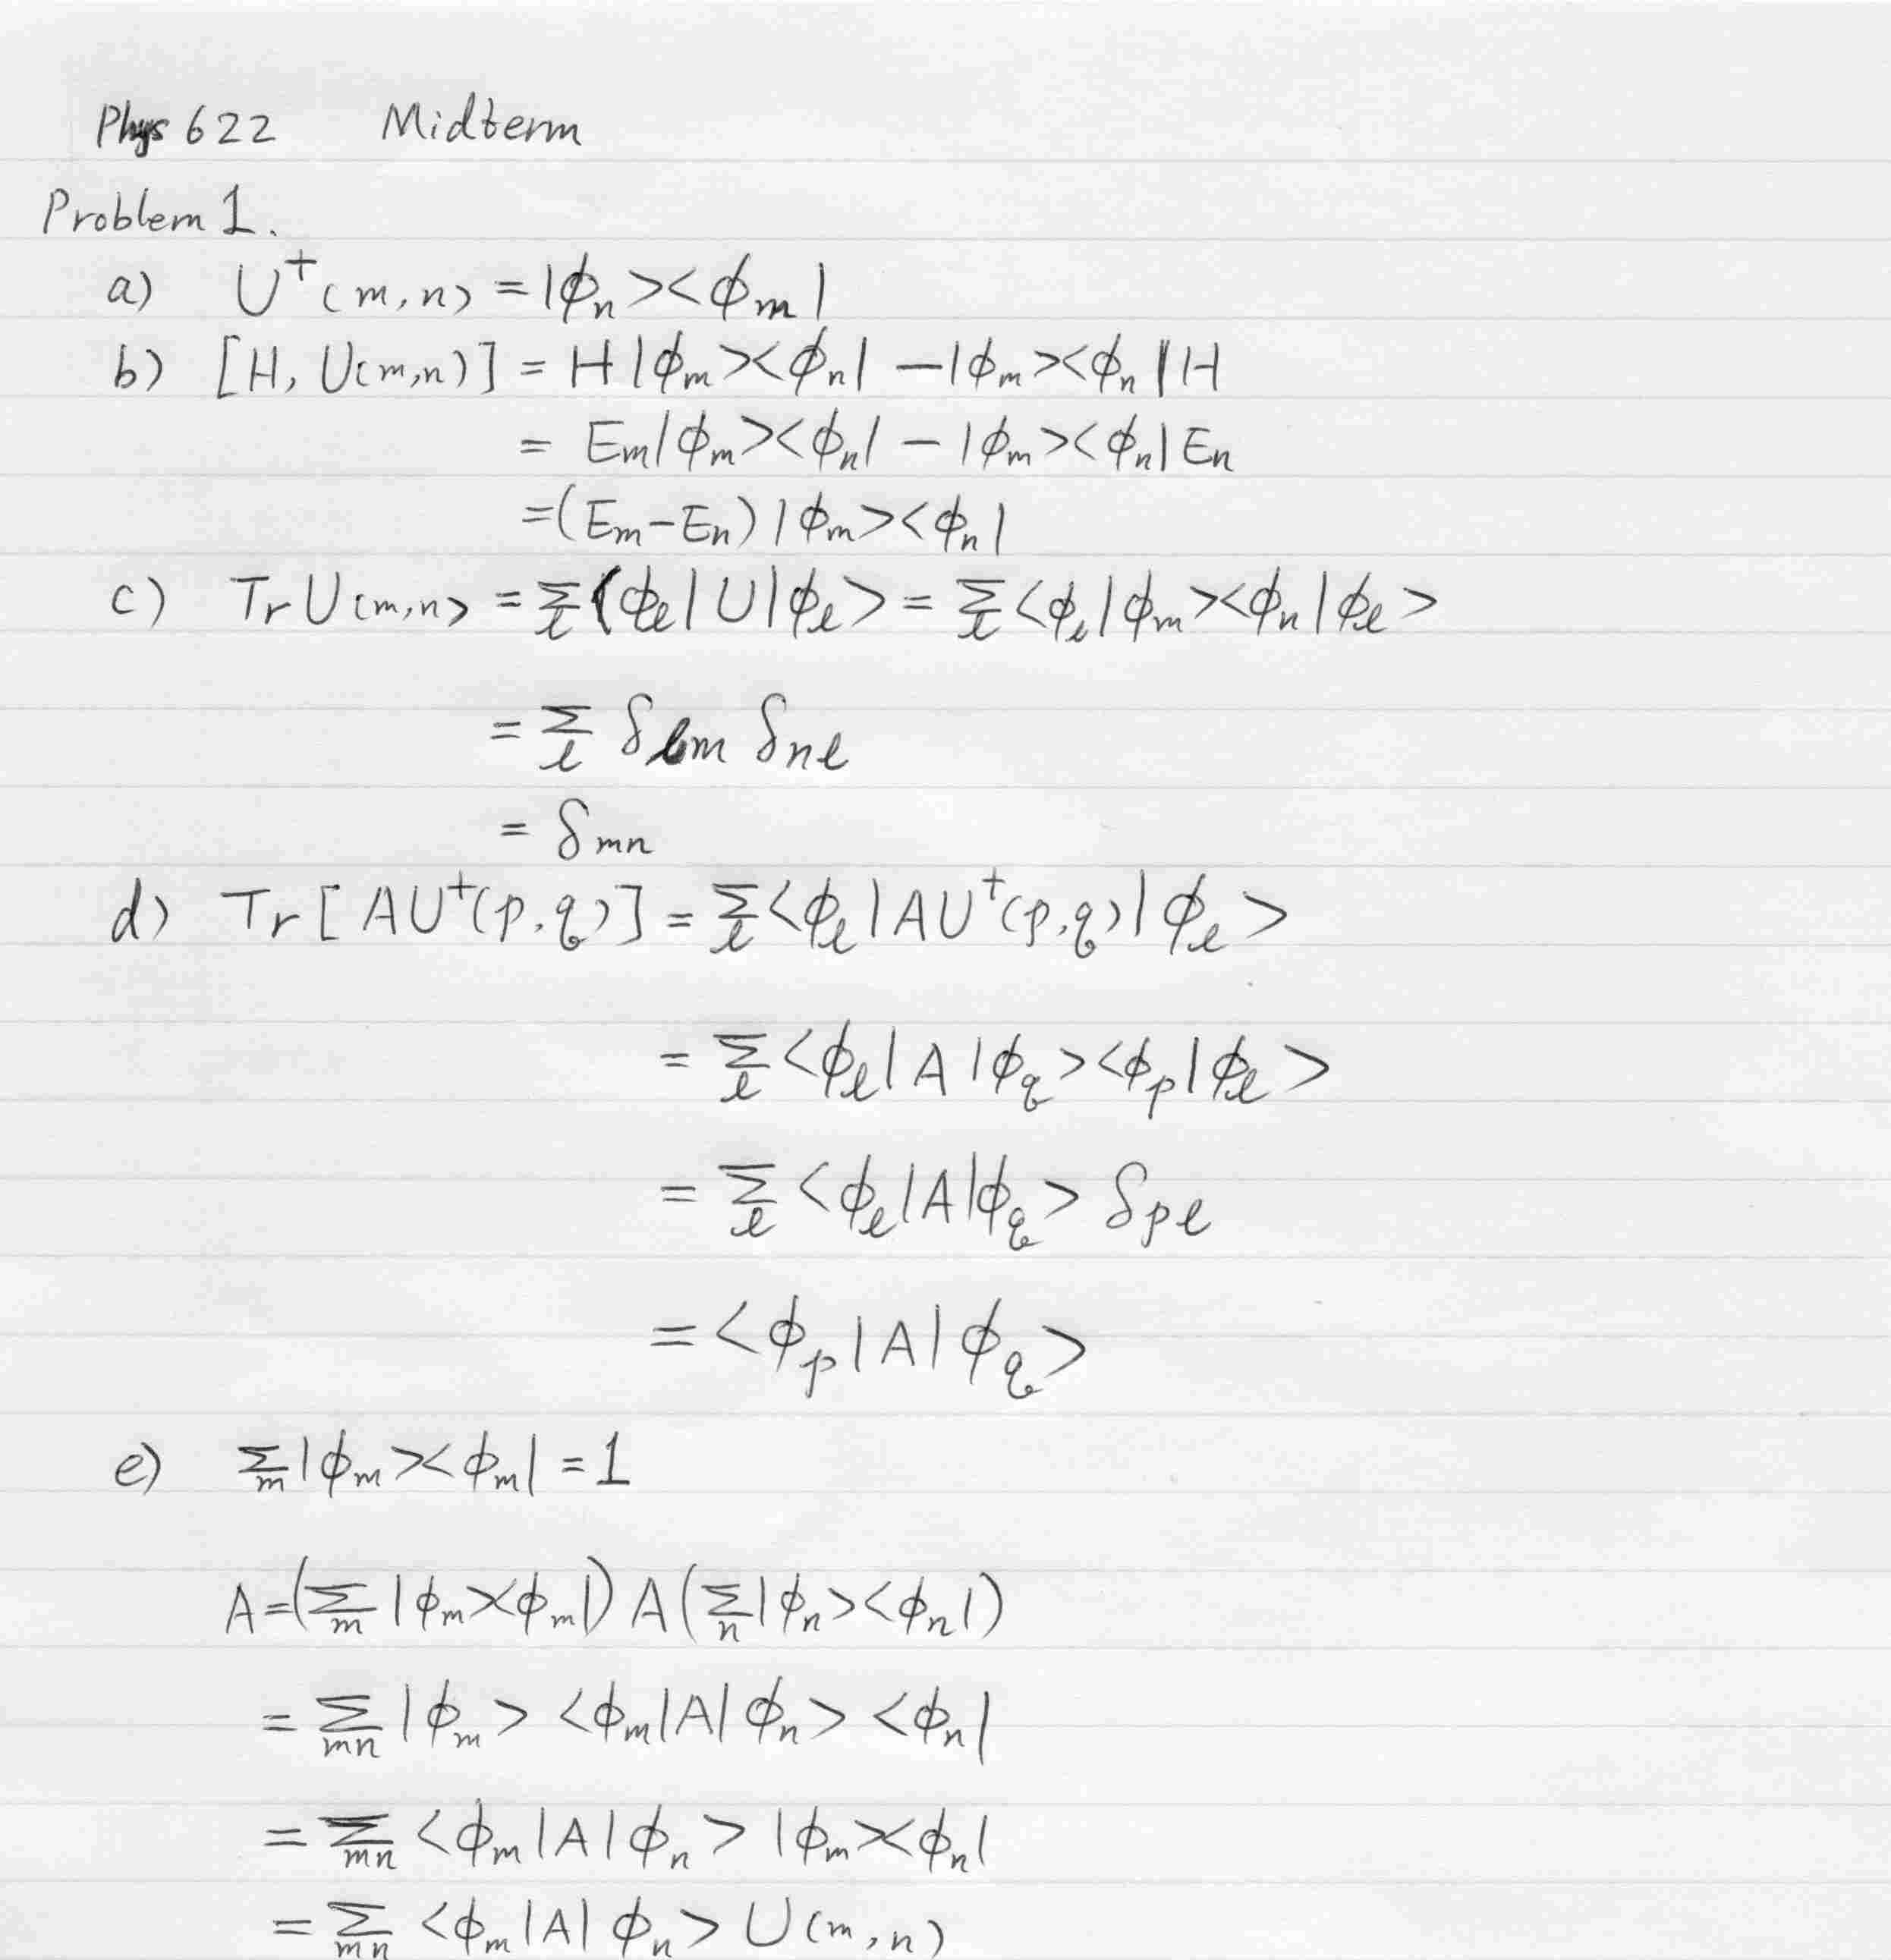 Phys 622 Midterm
Problem 1.
a) U†(m,n) = |ϕn><ϕm|
b) [H, U(m,n)] = H|ϕm><ϕn| - |ϕm><ϕn|H
= Em|ϕm><ϕn| - |ϕm><ϕn|En
=(Em-En)|ϕm><ϕn|
c) Tr U(m,n) = Σl <ϕl|U|ϕl> = Σl <ϕl|ϕm><ϕn|ϕl>
= Σl δlm δnl
= δmn
d) Tr[AU†(p,q)] = Σl <ϕl|AU†(p,q)|ϕl>
= Σl <ϕl|A|ϕq><ϕp|ϕl>
= Σl <ϕl|A|ϕq> δpl
= <ϕp|A|ϕq>
e) Σm |ϕm><ϕm| = 1
A=(Σm |ϕm><ϕm|) A (Σn |ϕn><ϕn|)
= Σmn |ϕm> <ϕm|A|ϕn> <ϕn|
= Σmn <ϕm|A|ϕn> |ϕm><ϕn|
= Σmn <ϕm|A|ϕn> U(m,n)